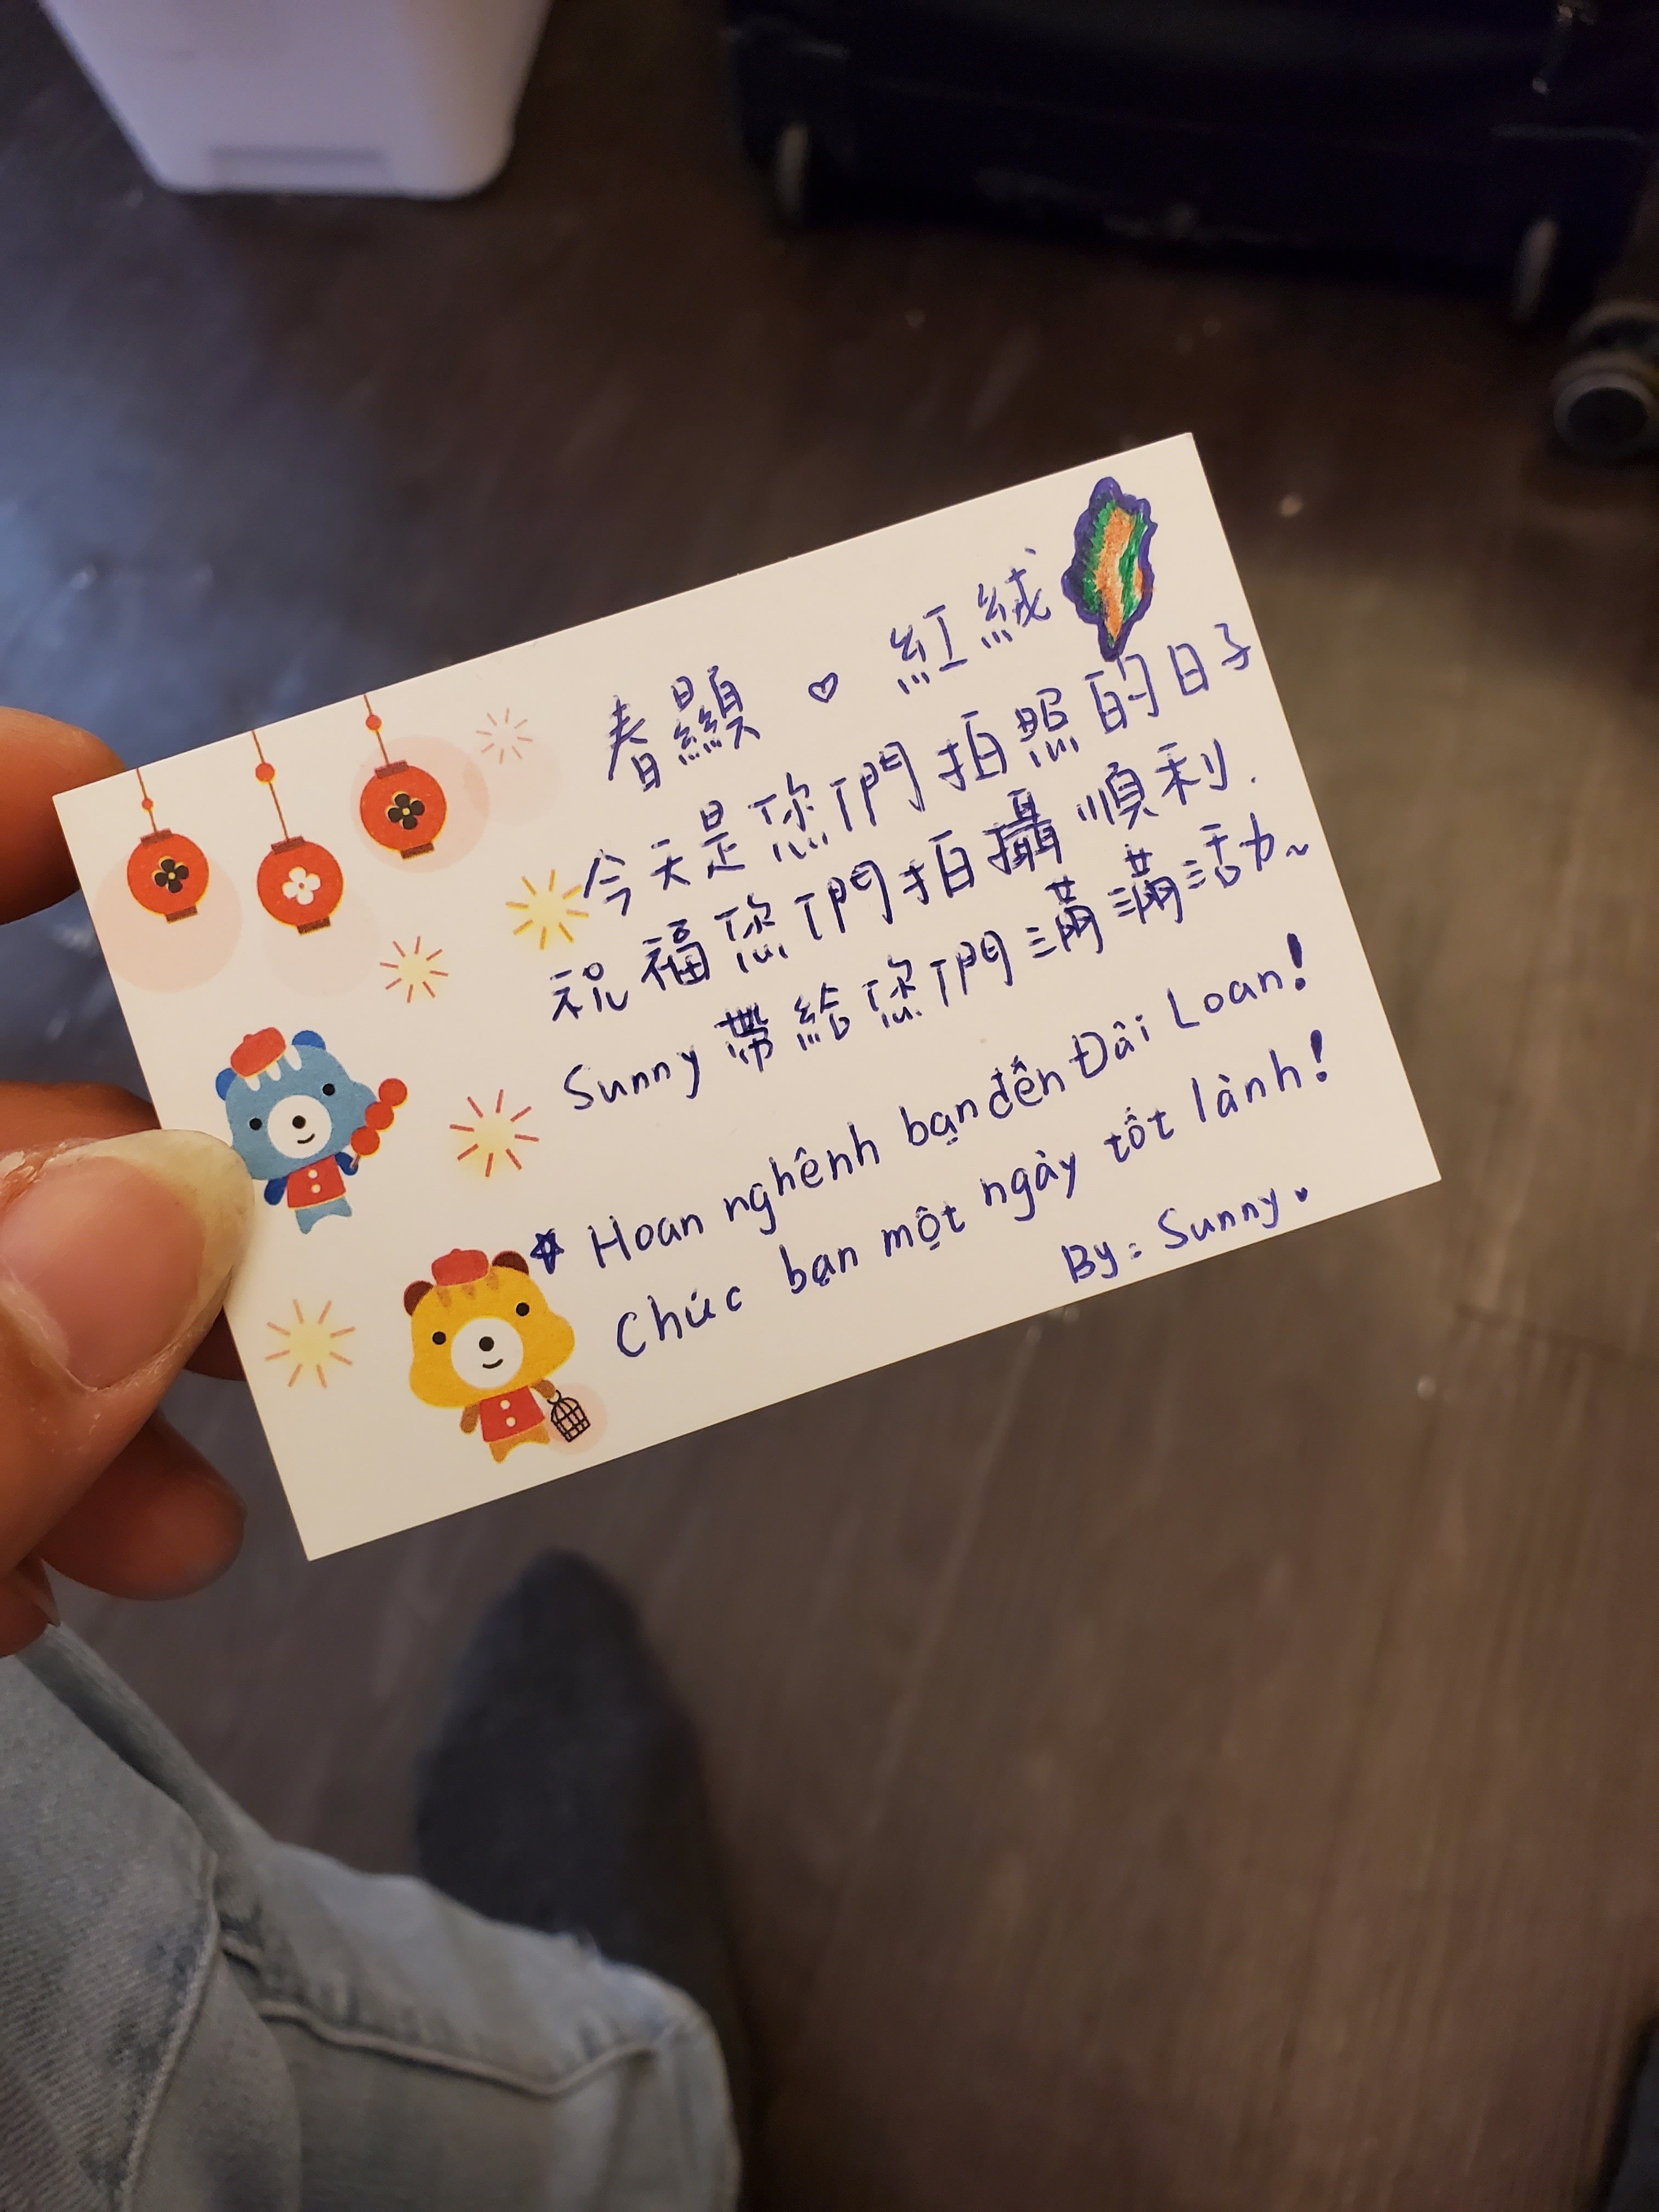 春顯 ♡ 紅絨
今天是您們拍照的日子
祝福您們拍攝順利.
Sunny 帶給您們滿滿活力~
☆ Hoan nghênh bạn đến Đài Loan!
Chúc bạn một ngày tốt lành!
By: Sunny.